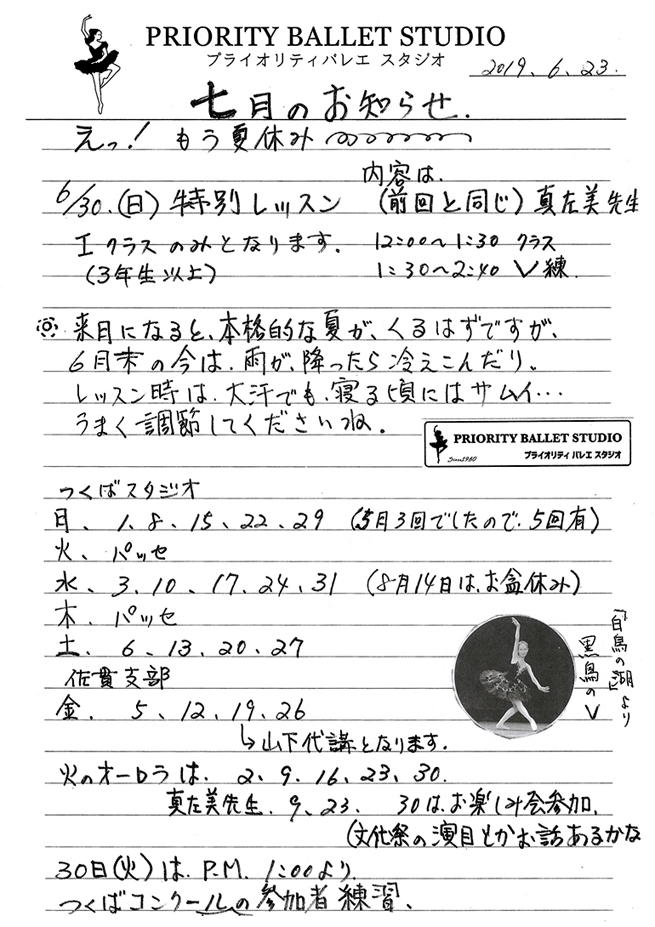 PRIORITY BALLET STUDIO
プライオリティバレエ スタジオ
2019.6.23.
七月のお知らせ.
えっ! もう夏休み
内容は.
6/30.(日) 特別レッスン (前回と同じ) 真左美先生
Iクラスのみとなります. 12:00〜1:30 クラス
(3年生以上) 1:30〜2:40 V練.
来月になると、本格的な夏が、くるはずですが、
6月末の今は.雨が、降ったら冷えこんだり。
レッスン時は.大汗でも、寝る頃にはサムイ…
うまく調節してくださいね.
PRIORITY BALLET STUDIO
Since1980
プライオリティ バレエ スタジオ
つくばスタジオ
日、 1、8、15、22、29 (5月3回でしたので、5回有)
火、パッセ
水、3、10、17、24、31 (8月14日は、お盆休み)
木、パッセ
土、6、13、20、27
「白鳥の湖」より
黒鳥のV
佐貫支部
金. 5、12、19、26
↳山下代講となります.
火のオーロラは. 2、9、16、23、30.
真左美先生. 9、23. 30は、お楽しみ会参加.
(文化祭の演目とかお話あるかな
30日(火)は.P.M. 1:00より.
つくばコンクールの参加者練習、